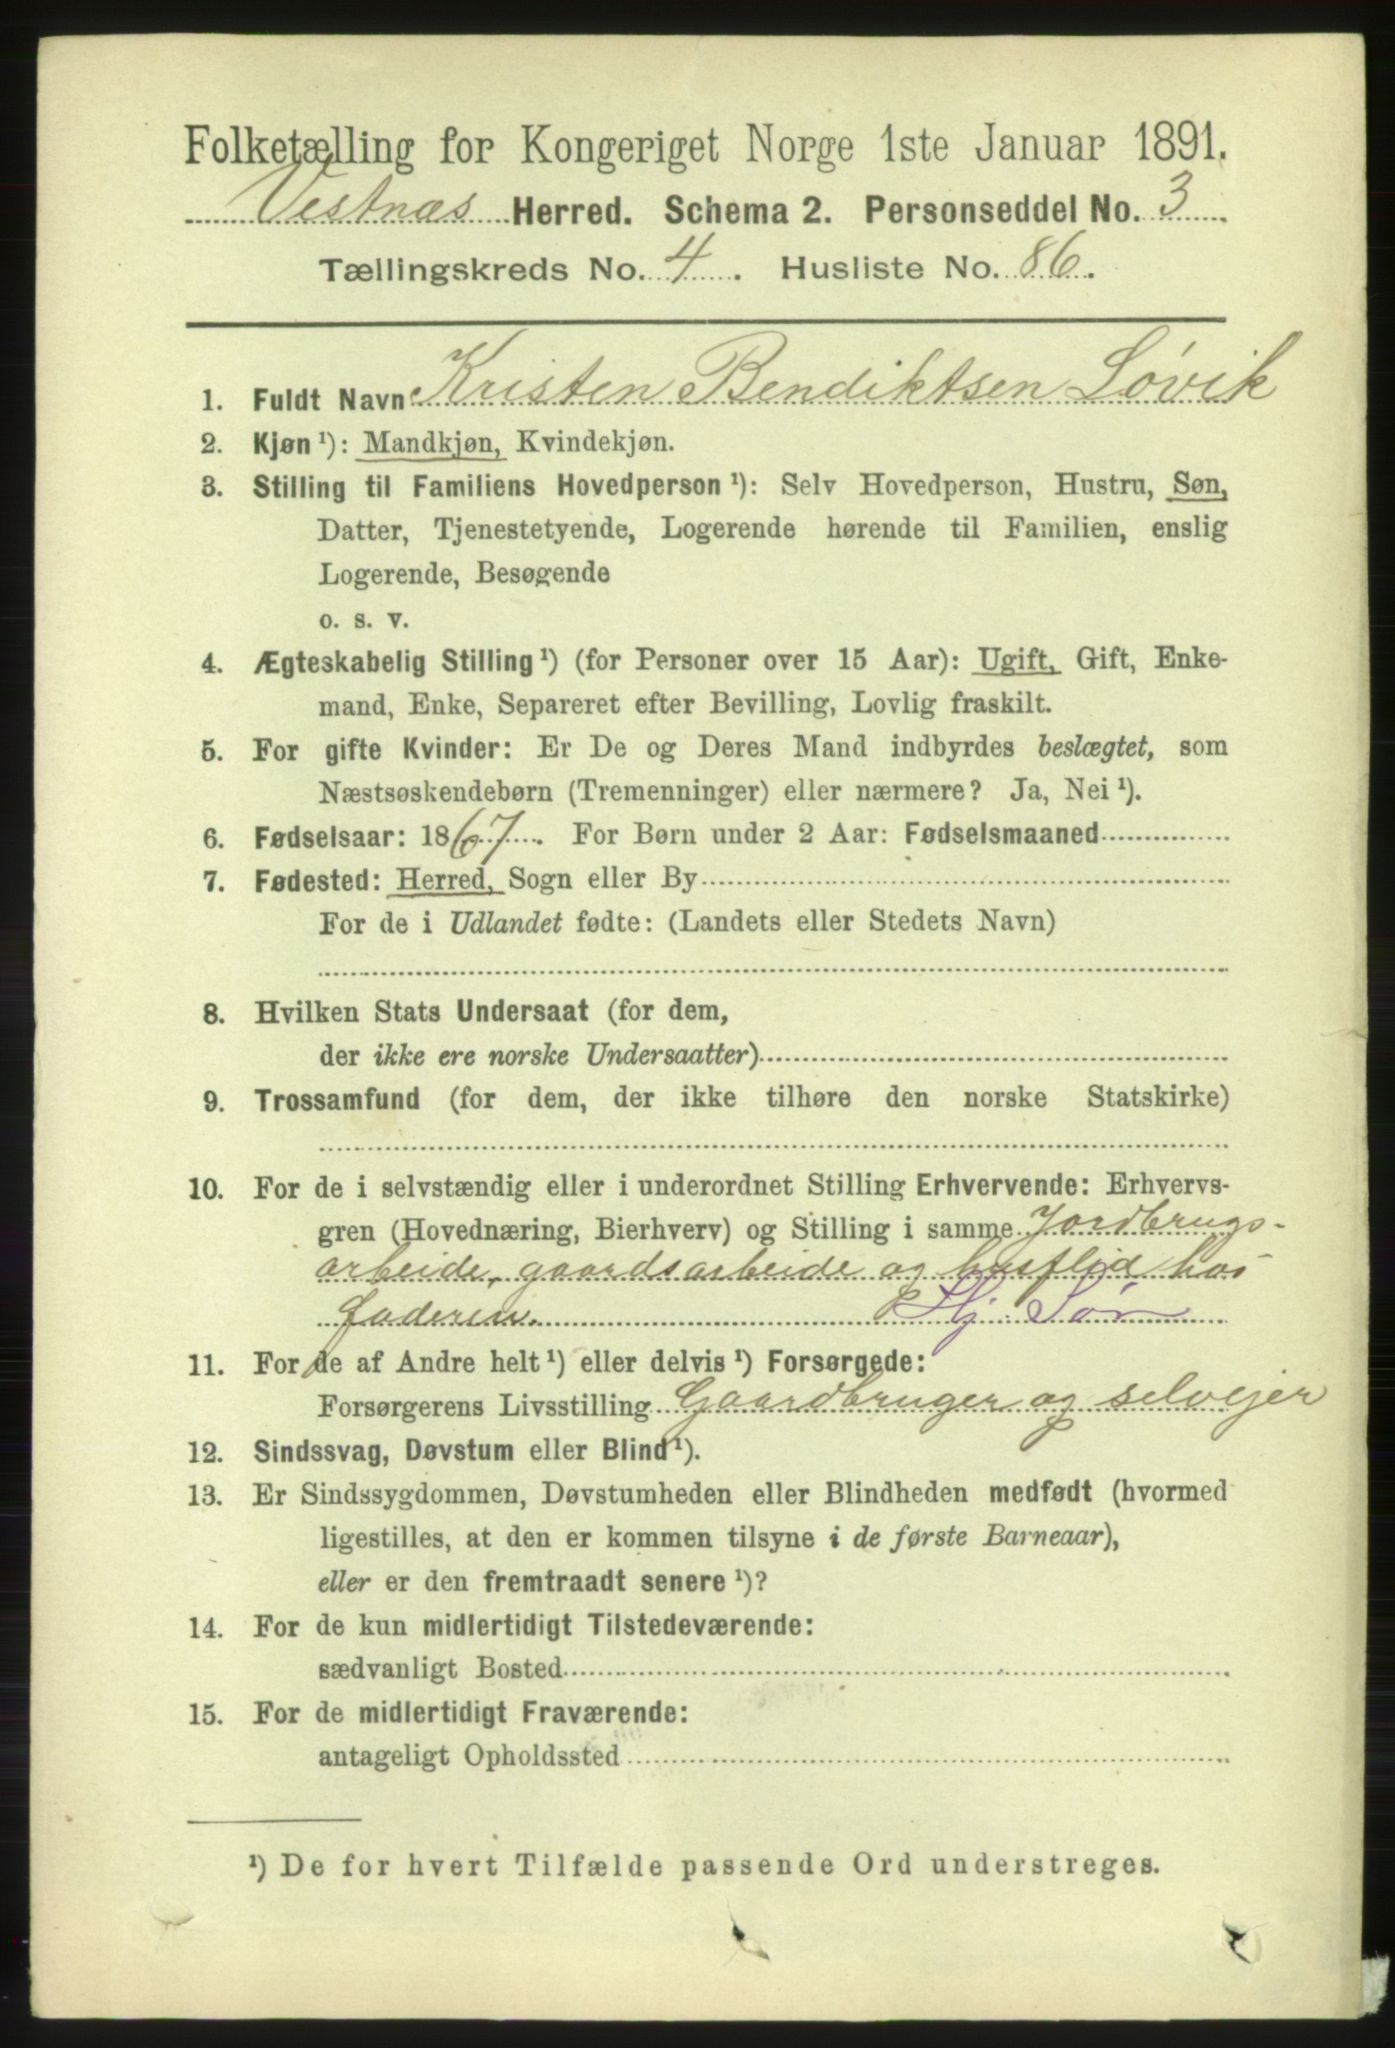 Folketælling for Kongeriget Norge 1ste Januar 1891.
Vestnæs Herred. Schema 2. Personseddel No. 3
Tællingskreds No. 4. Husliste No. 86.
1. Fuldt Navn Kristen Bendiktsen Løvik
2. Kjøn ¹): Mandkjøn, Kvindekjøn.
3. Stilling til Familiens Hovedperson ¹): Selv Hovedperson, Hustru, Søn,
Datter, Tjenestetyende, Logerende hørende til Familien, enslig
Logerende, Besøgende
o. s. v.
4. Ægteskabelig Stilling ¹) (for Personer over 15 Aar): Ugift, Gift, Enke-
mand, Enke, Separeret efter Bevilling, Lovlig fraskilt.
5. For gifte Kvinder: Er De og Deres Mand indbyrdes beslægtet, som
Næstsøskendebørn (Tremenninger) eller nærmere? Ja, Nei ¹).
6. Fødselsaar: 1867. For Børn under 2 Aar: Fødselsmaaned
7. Fødested: Herred, Sogn eller By
For de i Udlandet fødte: (Landets eller Stedets Navn)
8. Hvilken Stats Undersaat (for dem,
der ikke ere norske Undersaatter)
9. Trossamfund (for dem, der ikke tilhøre den norske Statskirke)
10. For de i selvstændig eller i underordnet Stilling Erhvervende: Erhvervs-
gren (Hovednæring, Bierhverv) og Stilling i samme Jordbrugs-
arbeide, gaardsarbeide og husflid hos
faderen. Hj. Søn
11. For de af Andre helt ¹) eller delvis ¹) Forsørgede:
Forsørgerens Livsstilling Gaardbruger og selvejer
12. Sindssvag, Døvstum eller Blind ¹).
13. Er Sindssygdommen, Døvstumheden eller Blindheden medfødt (hvormed
ligestilles, at den er kommen tilsyne i de første Barneaar),
eller er den fremtraadt senere ¹)?
14. For de kun midlertidigt Tilstedeværende:
sædvanligt Bosted
15. For de midlertidigt Fraværende:
antageligt Opholdssted
¹) De for hvert Tilfælde passende Ord understreges.